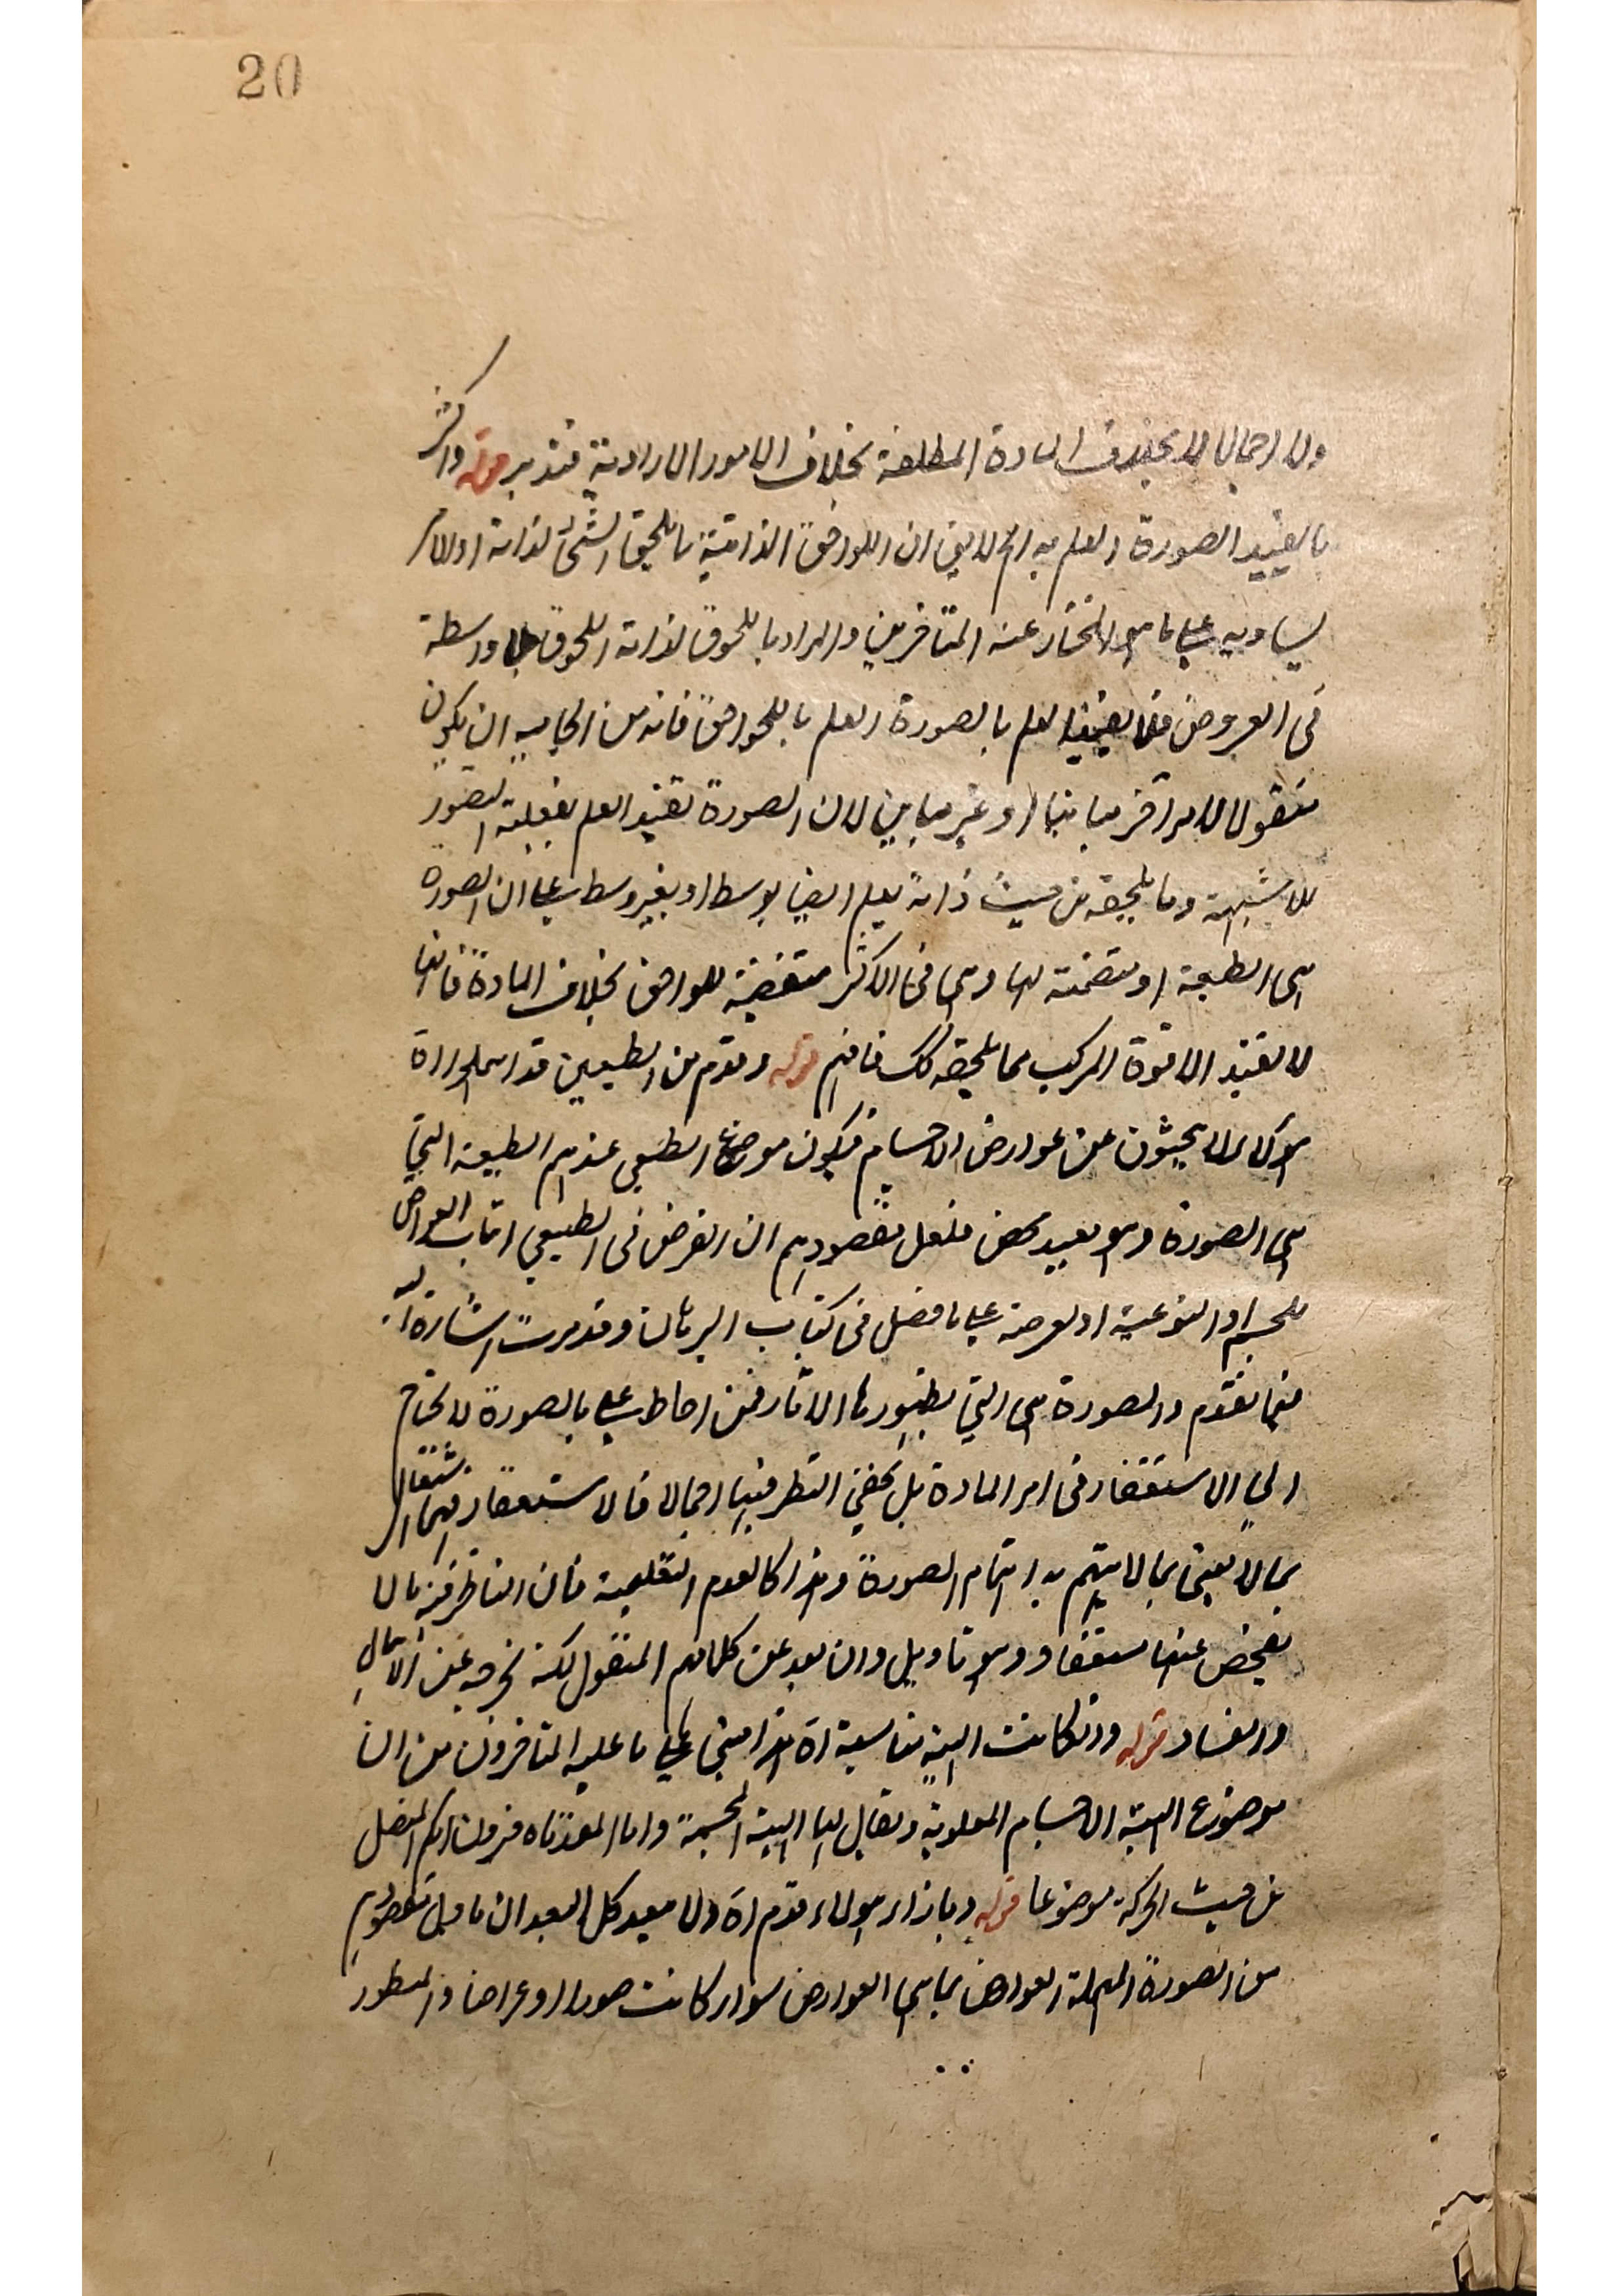 20
ولا اجمالا لا يخلف المادة المطلقة بخلاف الامور الارادية فتدبر قوله واكثر
ما يفيد الصورة العلم به اه لا يق ان اللواحق الذاتية ما يلحق الشئ لذاته او لامر
يساويه على ما هو المختار عند المتاخرين والمراد باللحوق لذاته اللحوق بلا واسطة
في العروض فلا يفيد العلم بالصورة العلم باللواحق فانه من الجايز ان يكون
معقولا لامر اخر مباينا او غير مباين لان الصورة تفيد العلم بفعلية التصور
للاشبهة وما يلحقه من حيث ذاته يعلم ايضا بوسط او بغير وسط على ان الصورة
هي الطبيعة او متضمنة لها وهي في الاكثر مقتضية للواحق بخلاف المادة فانها
لا تفيد الا قوة المركب مما يلحقه كك فافهم قوله وقوم من الطبيعيين قد اهملوا اه
هؤلاء لا يبحثون عن عوارض الاجسام فيكون موضوع الطبيعي عندهم الطبيعة التي
هي الصورة وهو بعيد محض فلعل مقصودهم ان الغرض في الطبيعي اثبات العوارض
للجسم او النوعية او لعرضه على ما فصل في كتاب البرهان وقد مرت اشارة اليه
فيما تقدم والصورة هي التي يظهر بها الاثار فمن احاط علما بالصورة لا يحتاج
الى الاستقصاء في امر المادة بل يكفي النظر فيها اجمالا فالاستقصاء فيها اشتغال
بما لا يعنى بما لا يتم به اتمام الصورة وهذا كالعلوم التعليمية فان الناظر فيها لا
يفحص عنها استقصاء وهو تاويل وان بعد عن كلامهم المنقول لكنه نخرجه عن الاهمال
والفساد قوله وان كانت الهيئة مناسبة اه هذا مبني على ما عليه المتاخرون من ان
موضوع الهيئة الاجسام العلوية ويقال لها الهيئة المجسمة واما القدماء فيرون الكم المتصل
من حيث الحركة موضوعا قوله وبازاء هؤلاء قوم اه ولا يبعد كل البعد ان ياول مقصودهم
من الصورة المهملة العوارض بما هي العوارض سواء كانت صورا او اعراضا والمنظور